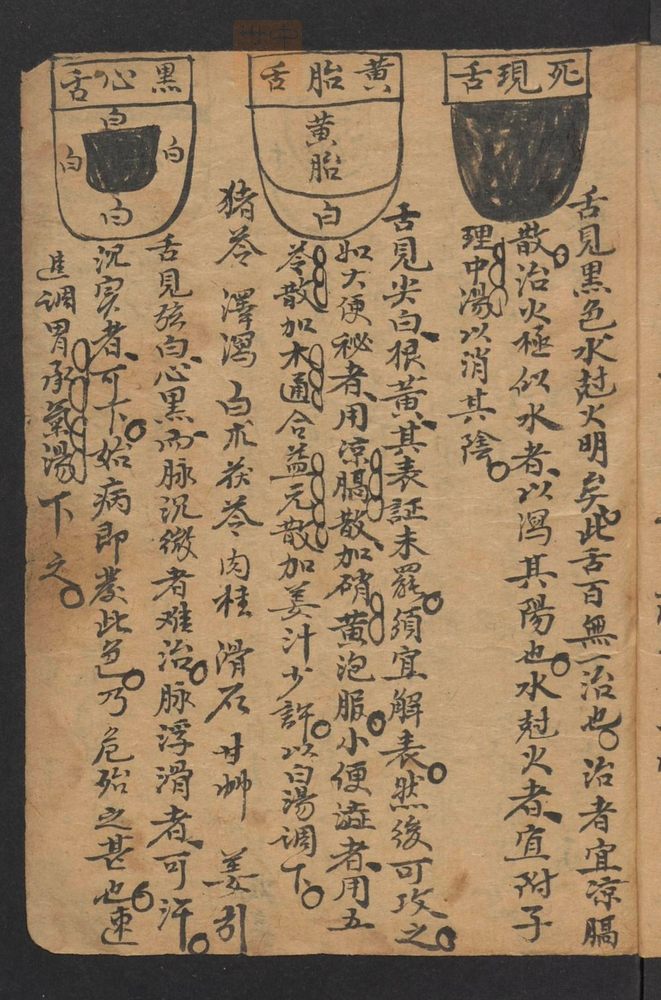 死現舌
舌見黑色水尅火明矣此舌百無一治也。治者宜凉膈
散。治火極似水者、以瀉其陽也。水尅火者、宜附子
理中湯以消其陰。
黃胎舌
黃胎
白
舌見尖白、根黃、其表証未罷。須宜解表。然後可攻之。
如大便秘者、用凉膈散、加硝黃泡服。小便澁者、用五
苓散加木通合益元散加姜汁少許。以白湯調下。
猪苓 澤瀉 白朮 茯苓 肉桂 滑石 甘艸 姜引
黑心舌
白
白
白
白
舌見弦白、心黑、而脉沉微者难治。脉浮滑者、可汗。
沉实者、可下。始病即發此色。乃危殆之甚也。速
進調胃承氣湯下之。